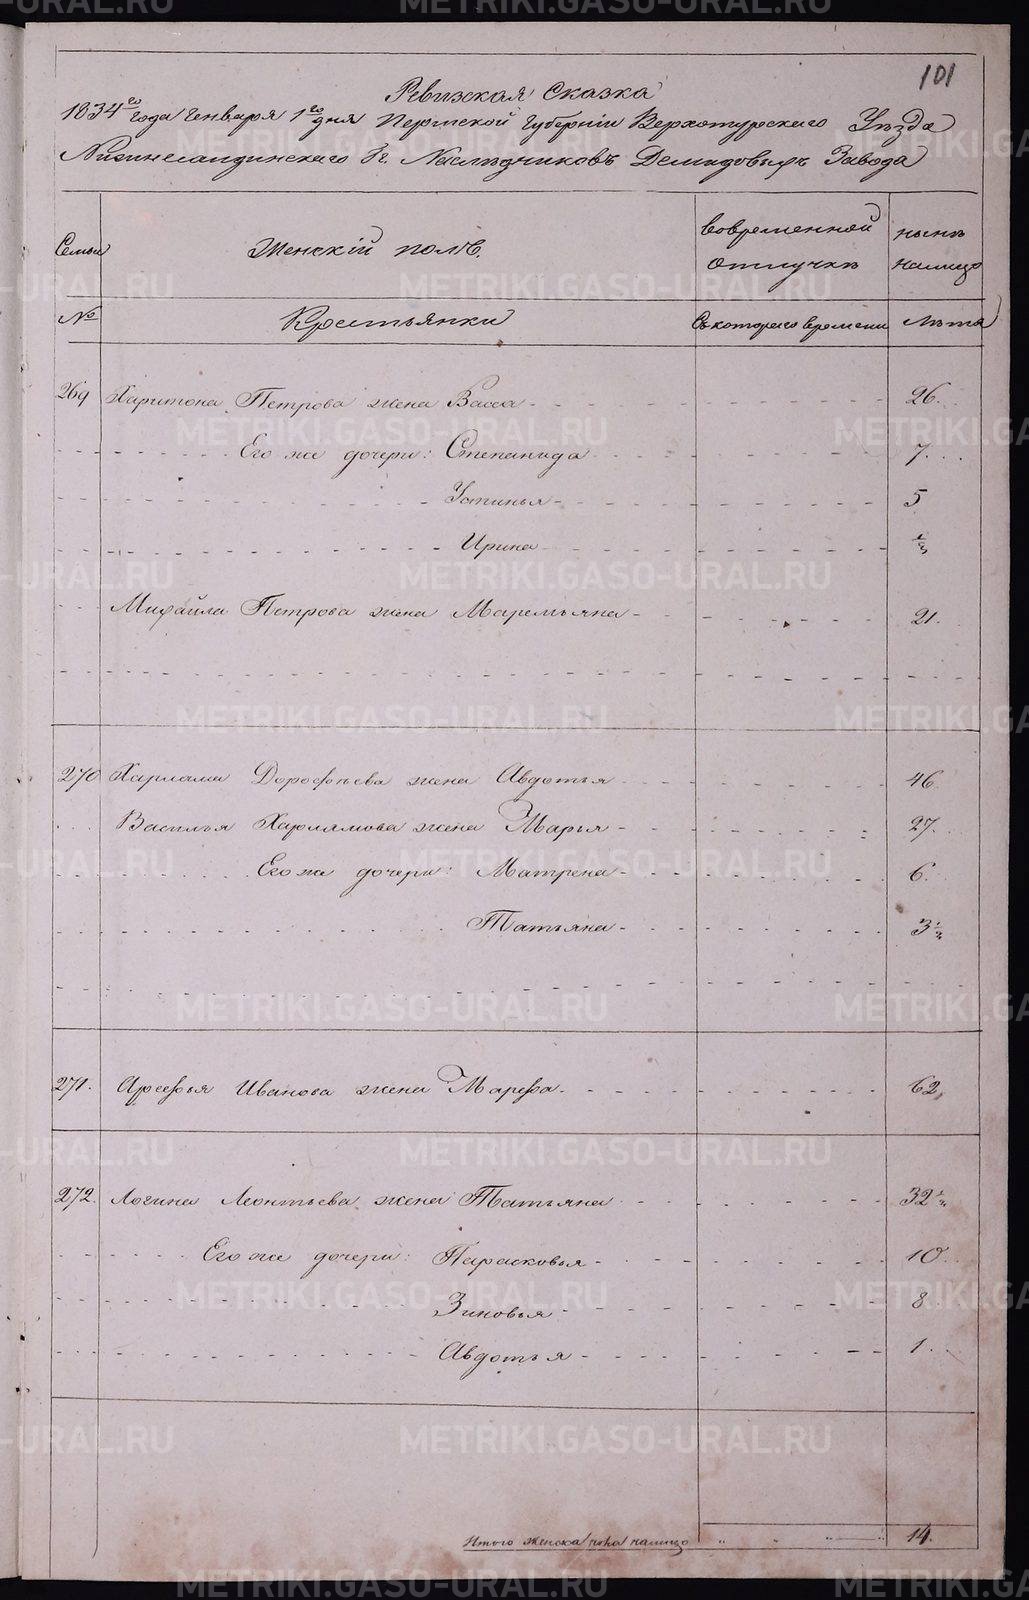 101
Ревизская Сказка
1834го года Генваря 1го дня Пермской Губернiи Верхотурскаго Уѣзда
Нижнесалдинскаго Гг. Наслѣдниковъ Демидовыхъ Завода
Семьи Женскiй полъ. Вовременной отлучкѣ нынѣ налицо
№ Крестьянки Скотораго времени Лѣта
269 Харитона Петрова жена Васса 26.
Его же дочери: Степанида 7.
Устинья 5
Ирина ½
Михайла Петрова жена Маремьяна 21.
270 Харлама Дорофѣева жена Авдотья 46
Василья Харламова жена Марья 27.
Его же дочери: Матрена 6.
Татьяна 3½
271. Арефья Иванова жена Марфа 62,
272. Логина Леонтьева жена Татьяна 32½
Его же дочери: Парасковья 10.
Зиновья 8.
Авдотья 1.
Итого женска пола налицо 14.
METRIKI.GASO-URAL.RU